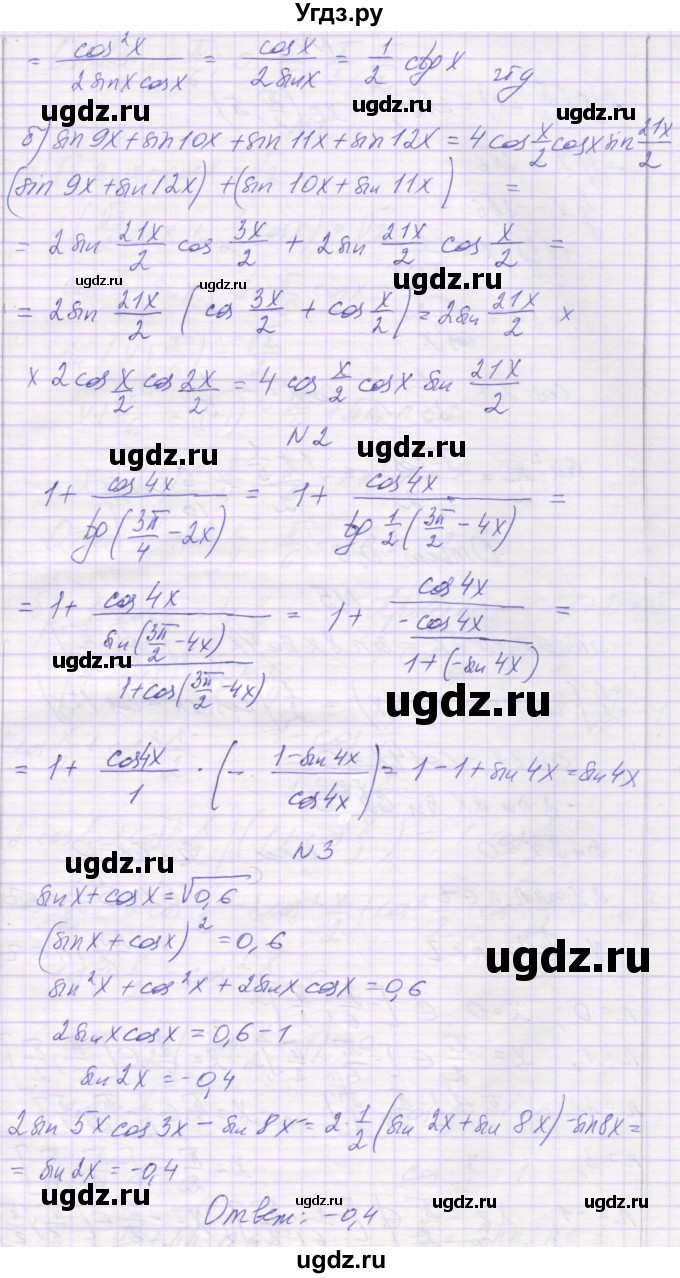 Угдз.ру
= cos²x / (2 sin x cos x) = cos x / (2 sin x) = 1/2 ctg x чтд
ugdz.ru ugdz.ru
б) sin 9x + sin 10x + sin 11x + sin 12x = 4 cos x/2 cos x sin 21x/2
(sin 9x + sin 12x) + (sin 10x + sin 11x) =
= 2 sin 21x/2 cos 3x/2 + 2 sin 21x/2 cos x/2 =
ugdz.ru ugdz.ru ugdz.ru
= 2 sin 21x/2 (cos 3x/2 + cos x/2) = 2 sin 21x/2 ×
× 2 cos x/2 cos 2x/2 = 4 cos x/2 cos x sin 21x/2
N2
ugdz.ru ugdz.ru
1 + cos 4x / tg(3π/4 - 2x) = 1 + cos 4x / tg 1/2 (3π/2 - 4x) =
= 1 + cos 4x / (sin(3π/2 - 4x) / (1 + cos(3π/2 - 4x))) = 1 + cos 4x / (-cos 4x / (1 + (-sin 4x))) =
ugdz.ru ugdz.ru
= 1 + cos 4x / 1 · (- (1 - sin 4x) / cos 4x) = 1 - 1 + sin 4x = sin 4x
N3
ugdz.ru
sin x + cos x = √0,6
(sin x + cos x)² = 0,6
ugdz.ru
sin²x + cos²x + 2 sin x cos x = 0,6
2 sin x cos x = 0,6 - 1
sin 2x = -0,4
2 sin 5x cos 3x - sin 8x = 2 · 1/2 (sin 2x + sin 8x) - sin 8x =
= sin 2x = -0,4
ugdz.ru ugdz.ru ugdz.ru ugdz.ru
Ответ: -0,4
ugdz.ru